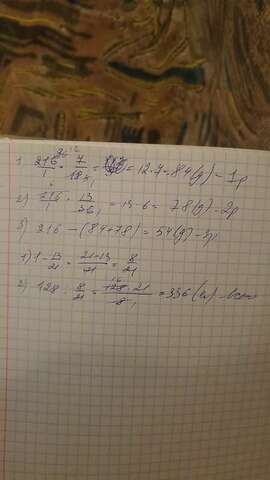 1. 216/1 · 7/18 = = 12·7 = 84(g) - 1p
2) 216/1 · 13/36 = 13·6 = 78(g) - 2p
3) 216 - (84+78) = 54(g) - 3p
1) 1 - 13/21 = 21-13/21 = 8/21
2) 128 : 8/21 = 128·21/8 = 336